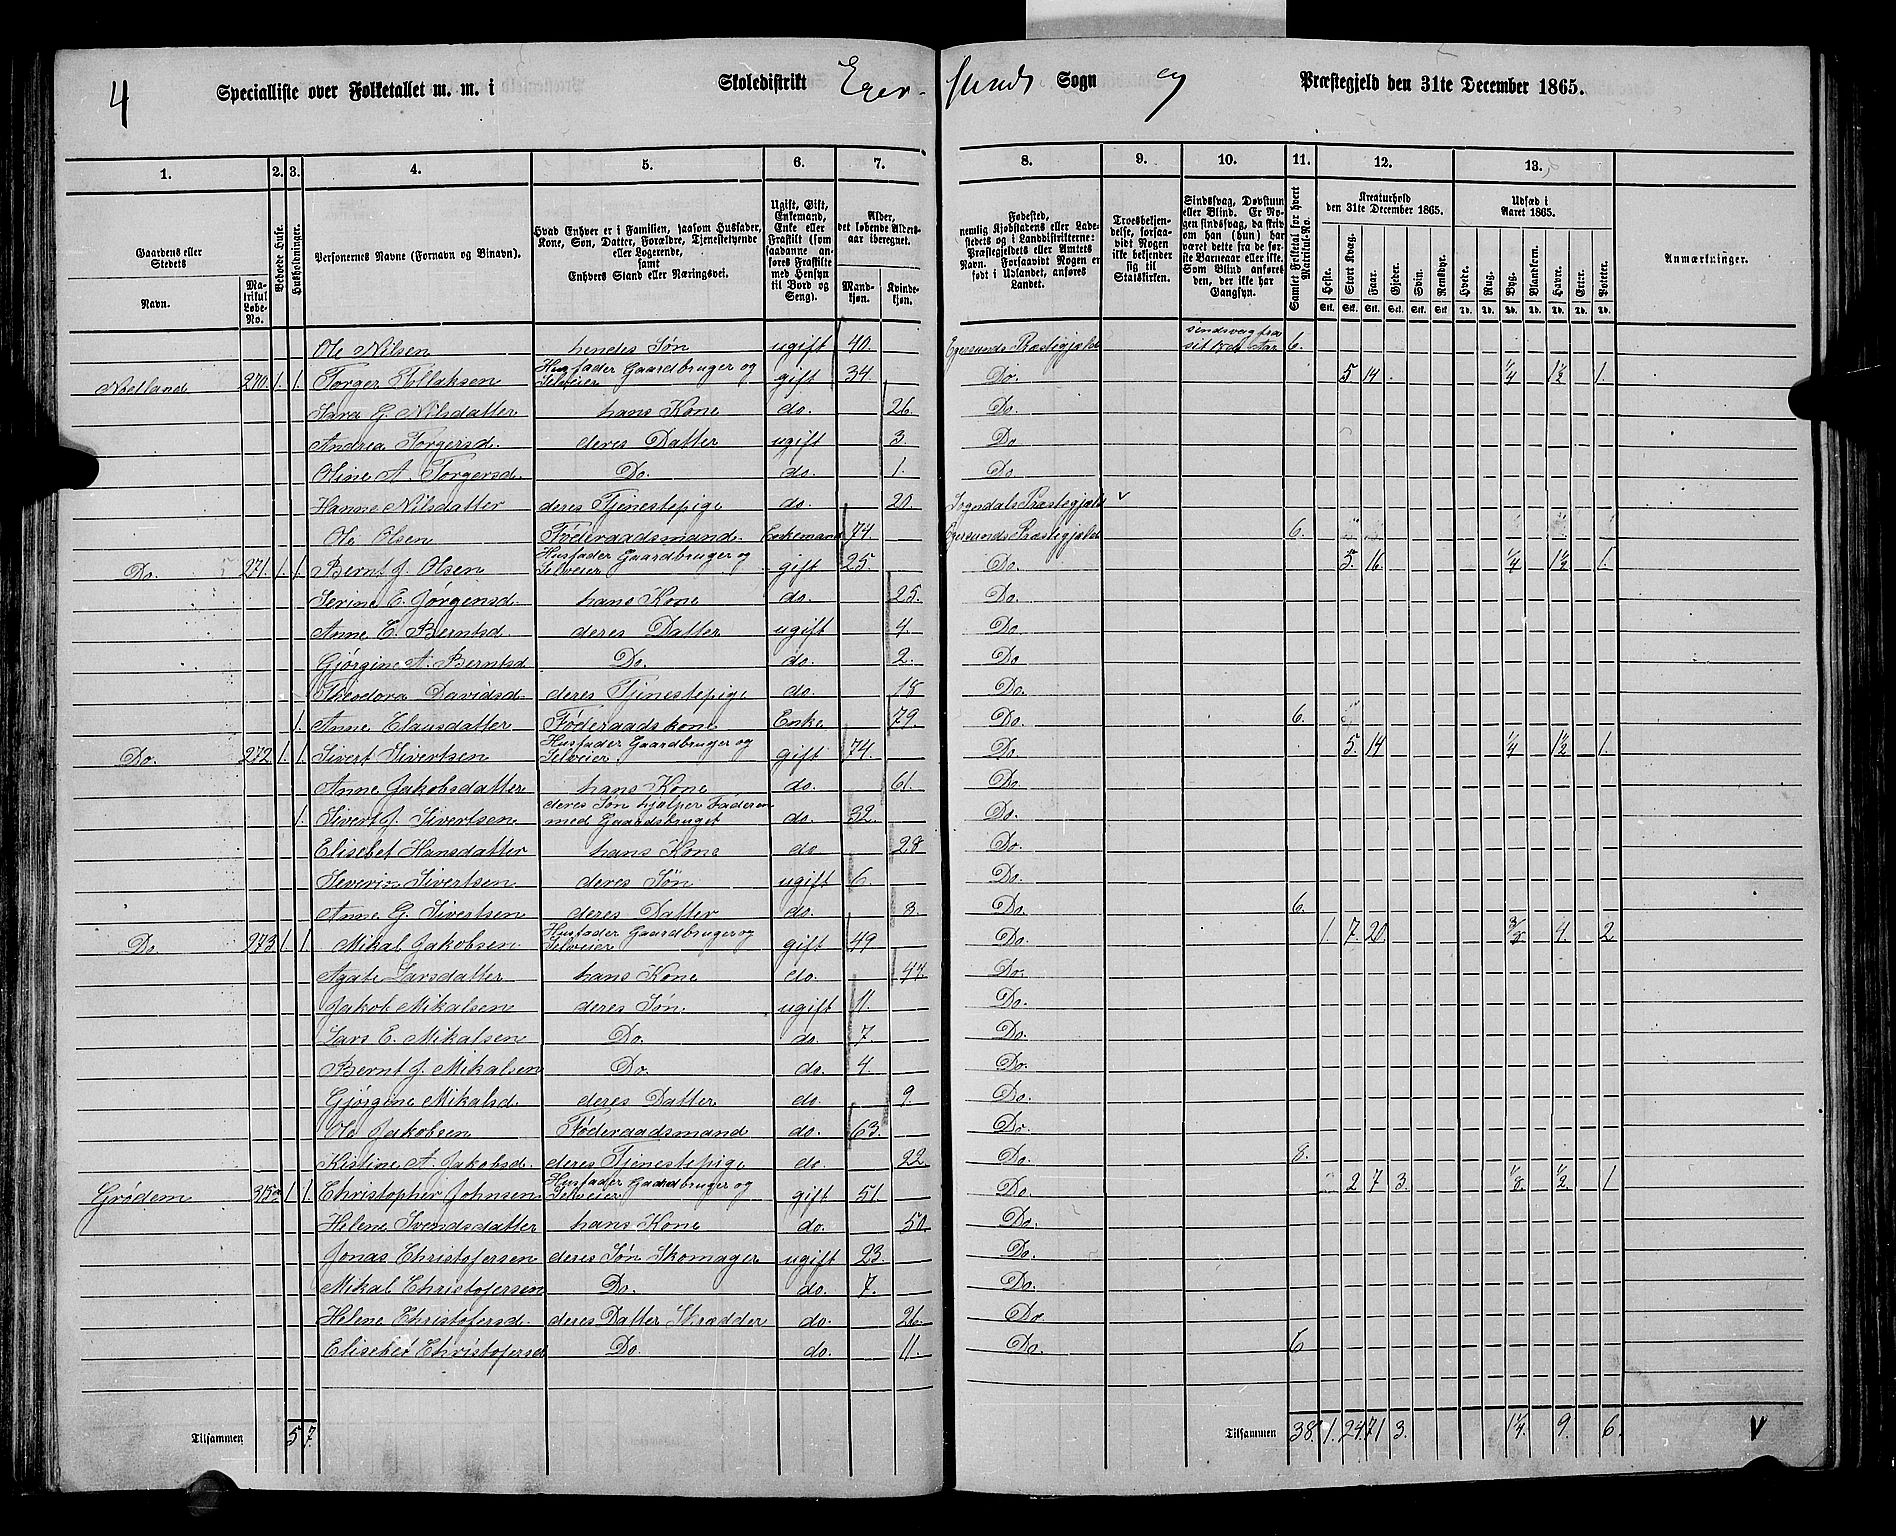 4 Specialliste over Folketallet m. m. i Skoledistrikt Eger- sunds Sogn og Præstegjeld den 31te December 1865.
1. 2. 3. 4. 5. 6. 7. 8. 9. 10. 11. 12. 13.
Gaardens eller Stedets
Navn. Matrikul Løbe-No.
Beboede Huse.
Husholdninger.
Personernes Navne (Fornavn og Binavn).
Hvad Enhver er i Familien, saasom Husfader, Kone, Søn, Datter, Forældre, Tjenestetyende eller Logerende, samt Enhvers Stand eller Næringsvei.
Ugift, Gift, Enkemand, Enke eller Fraskilt (som saadanne anføres Fraskilte med Hensyn til Bord og Seng).
Alder, det løbende Aldersaar iberegnet.
Mandkjøn. Kvindekjøn.
Fødested, nemlig Kjøbstadens eller Ladestedets og i Landdistrikterne: Præstegjeldets eller Amtets Navn. Forsaavidt Nogen er født i Udlandet, anføres Landet.
Troesbekjendelse, forsaavidt Nogen ikke bekjender sig til Statskirken.
Sindssvag, Døvstum eller Blind. Er Nogen sindssvag, da skrives om han (hun) har været dette fra de første Barneaar eller ikke. Som Blind anføres den, der ikke har Gangsyn.
Samlet Folketal for hvert Matrikul-No.
Kreaturhold den 31te December 1865.
Heste. Stort Kvæg. Faar. Gjeder. Svin. Rensdyr.
Udsæd i Aaret 1865.
Hvede. Rug. Byg. Blandkorn. Havre. Erter. Poteter.
Anmærkninger.
Ole Nilsen hendes Søn ugift 40. Egersunds Præstegjæld sindsvag fra 6.
Nøtland 270. 1. 1. Torger Tollaksen Husfader Gaardbruger og Selveier gift 34. Do. 5 14. 1/4 1 1/2 1.
Sara G. Nilsdatter hans Kone do. 26. Do.
Andrea Torgersd. deres Datter ugift 3. Do
Oline A. Torgersd. Do. do. 1. Do
Hanne Nilsdatter deres Tjenestepige do. 20. Sogndals Præstegjæld
Ole Olsen Føderaadsmand. Enkemand 74. Egersunds Præstegjæld 6.
Do. 271. 1. 1. Bernt J. Olsen Husfader Gaardbruger og Selveier gift 25. Do. 5. 16. 1/4 1 1/2 1.
Serine E. Jørgensd. hans Kone do. 25. Do.
Anne E. Berntsd. deres Datter ugift 4. Do.
Gjørgine A. Berntsd Do. do. 2. Do.
Theodora Davidsd. deres Tjenestepige do. 15 Do.
1. Anne Clausdatter Føderaadskone Enke 79. Do. 6.
Do. 272 1. 1. Sivert Sivertsen Husfader Gaardbruger og Selveier gift 74. Do 5. 14 1/4 1 1/2 1.
Anne Jakobsdatter hans Kone do. 61. Do.
1. Sivert J. Sivertsen deres Søn hjælper Faderen med Gaardsbruget do. 32. Do.
Elisebet Hansdatter hans Kone do 28 Do.
Severin Sivertsen deres Søn ugift 6. Do.
Anne G. Sivertsen deres Datter do. 3. Do. 6.
Do. 273 1. 1. Mikal Jakobsen Husfader Gaardbruger og Selveier gift 49 Do. 1. 7. 20. 4. 2
Agate Larsdatter hans Kone do. 44 Do.
Jakob Mikalsen deres Søn. ugift 11. Do.
Lars E. Mikalsen Do. do. 7. Do.
Bernt J. Mikalsen Do. do. 4. Do.
Gjørgine Mikalsd. deres Datter do. 9. Do.
Ole Jakobsen Føderaadsmand do. 63. Do
Kistine A. Jakobsd. deres Tjenestepige do. 22. Do. 8.
Grødem 315a 1. 1. Christopher Johnsen Husfader Gaardbruger og Selveier gift 51 Do. 2 7 3. 1/8 1/2 1
Helene Svendsdatter hans Kone do. 50 Do.
Jonas Christofersen deres Søn Skomager ugift 23. Do.
Mikal Christofersen Do. do. 7. Do.
Helene Christofersd. deres Datter Skrædder do. 26. Do
Elisebet Christofersd Do. do. 11. Do. 6
Tilsammen 5 7. Tilsammen 38. 1. 24. 71 3. 1 1/4. 9. 6.